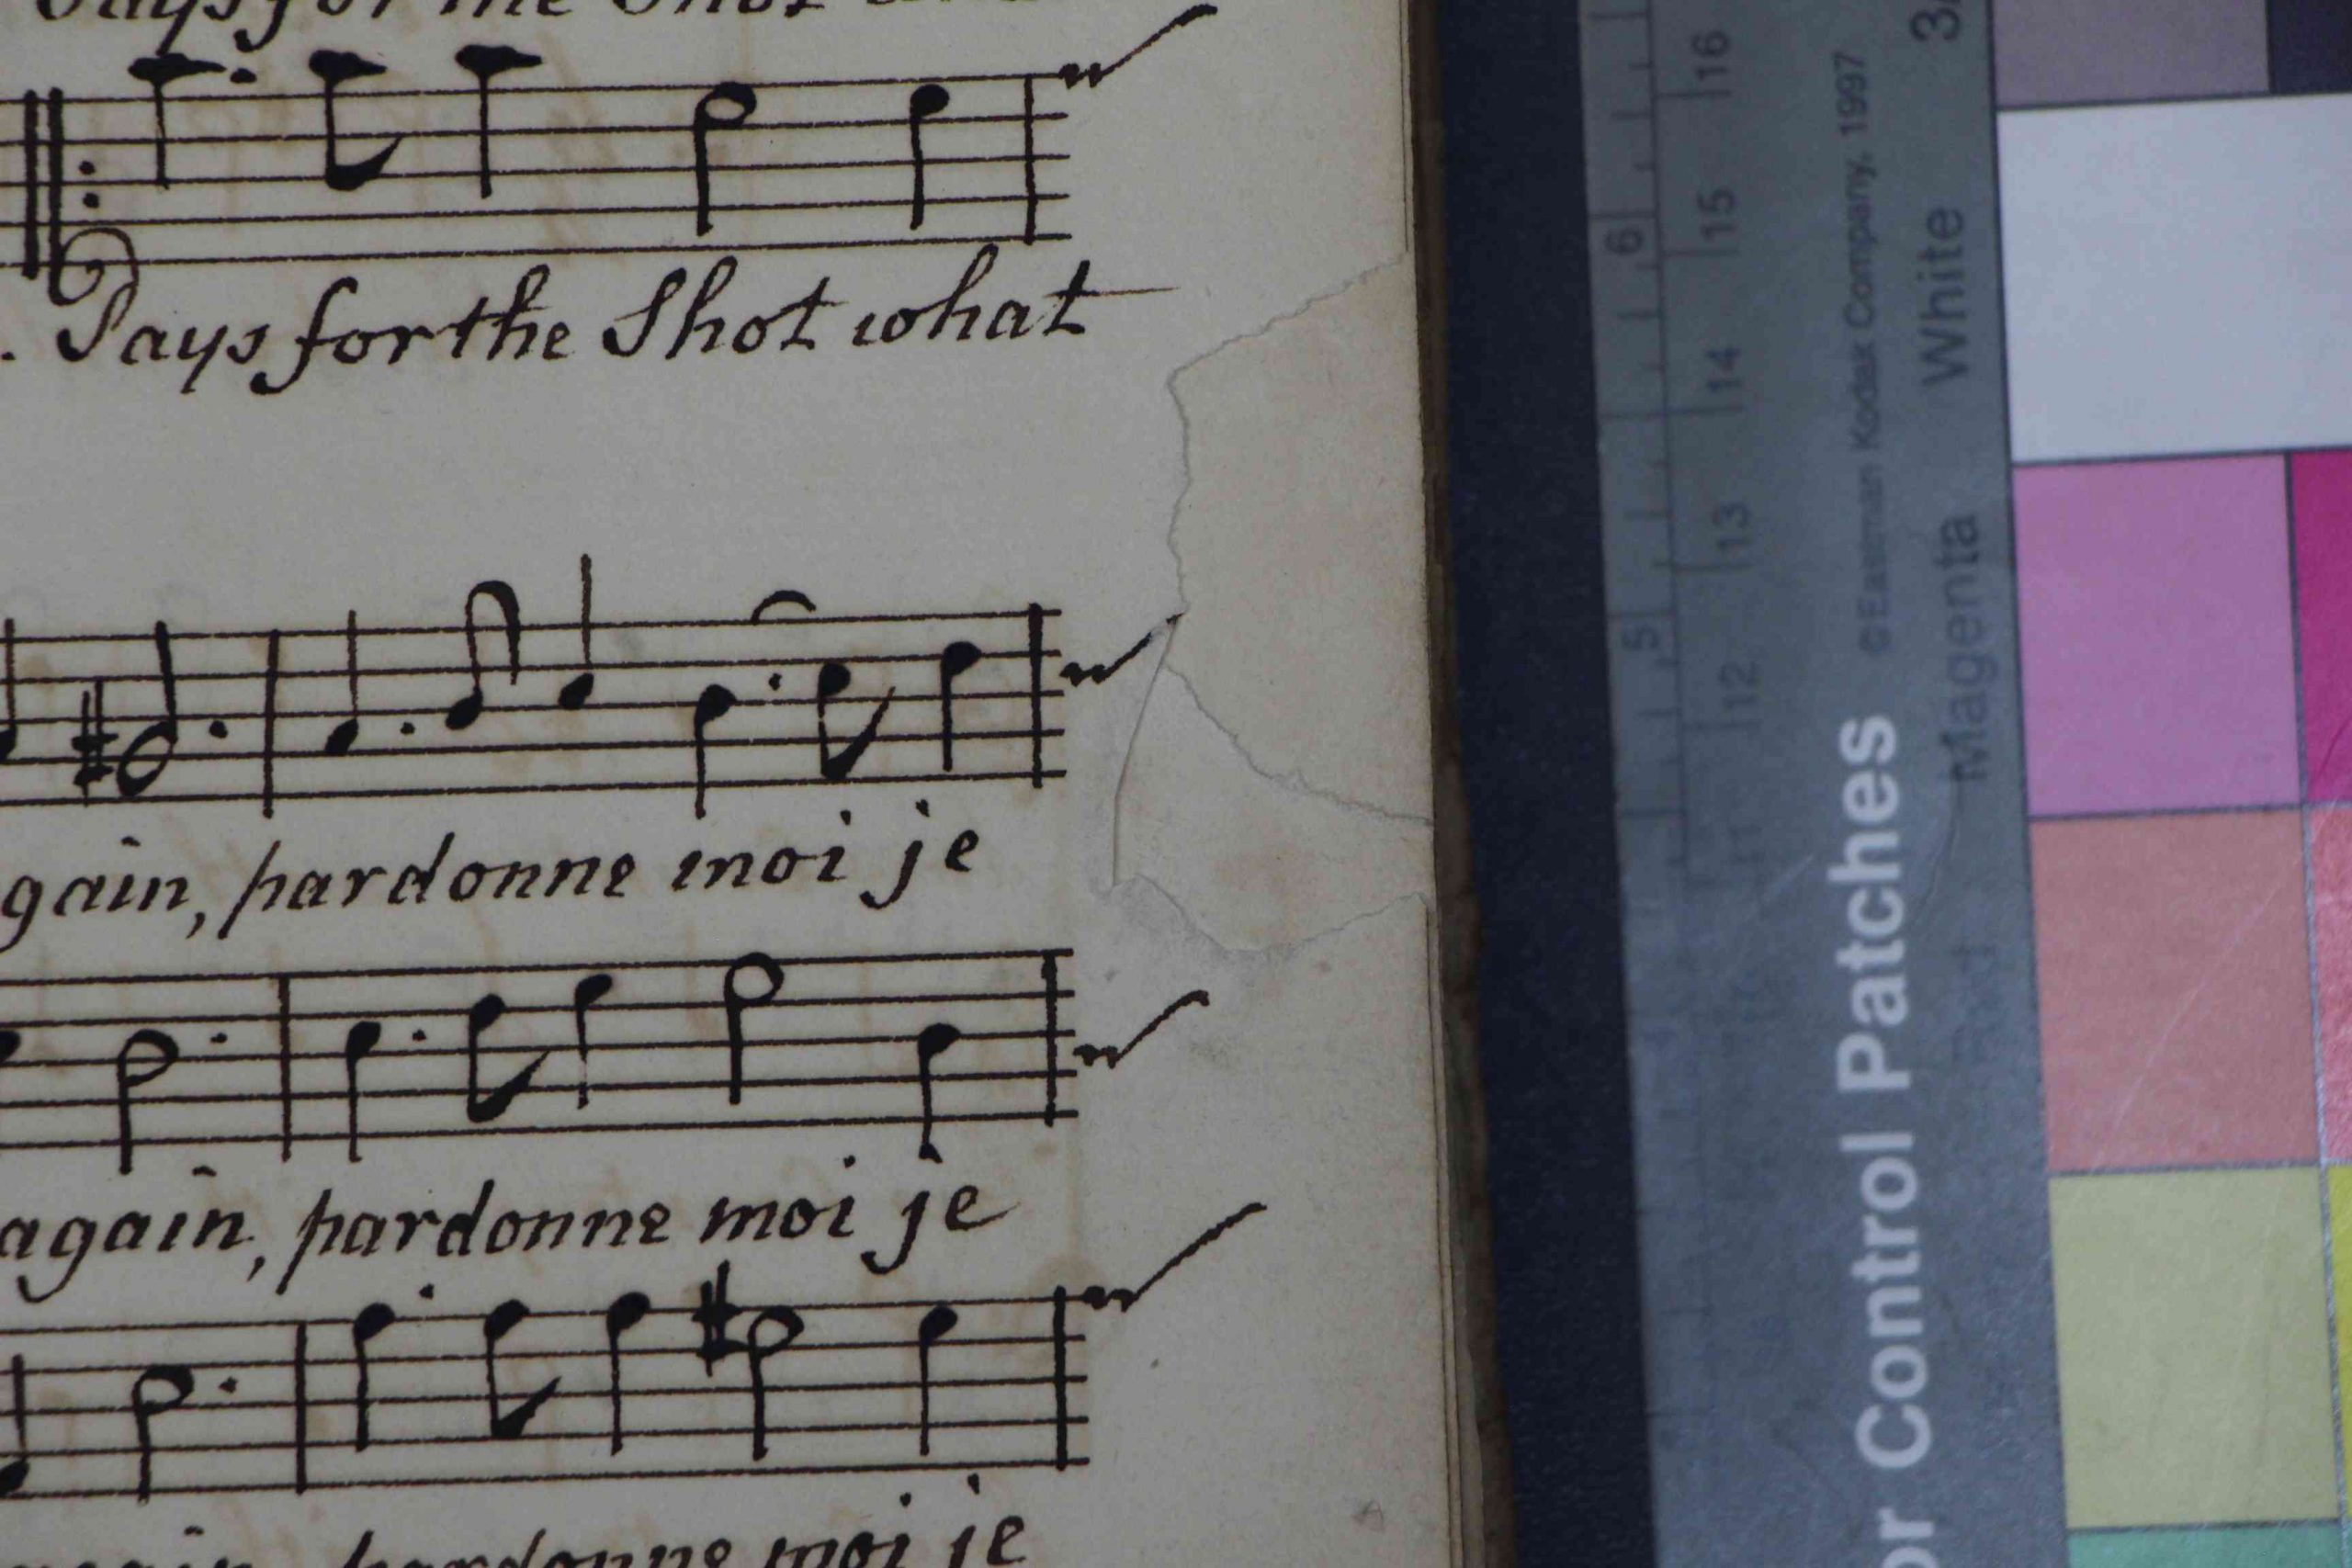 for the Shot
. Pays for the Shot what
gain, pardonne moi je
again, pardonne moi je
pardonne moi je
6
5
16
15
14
13
12
©Eastman Kodak Company, 1997
Control Patches
White
Magenta